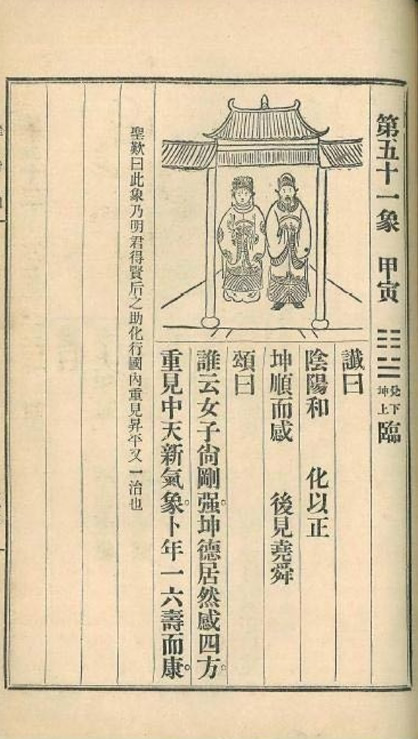 第五十一象 甲寅 ䷒ 兌下坤上 臨
讖曰
陰陽和 化以正
坤順而感 後見堯舜
頌曰
誰云女子尙剛强。坤德居然感四方。
重見中天新氣象。卜年一六壽而康。
聖歎曰此象乃明君得賢后之助化行國內重見昇平又一治也